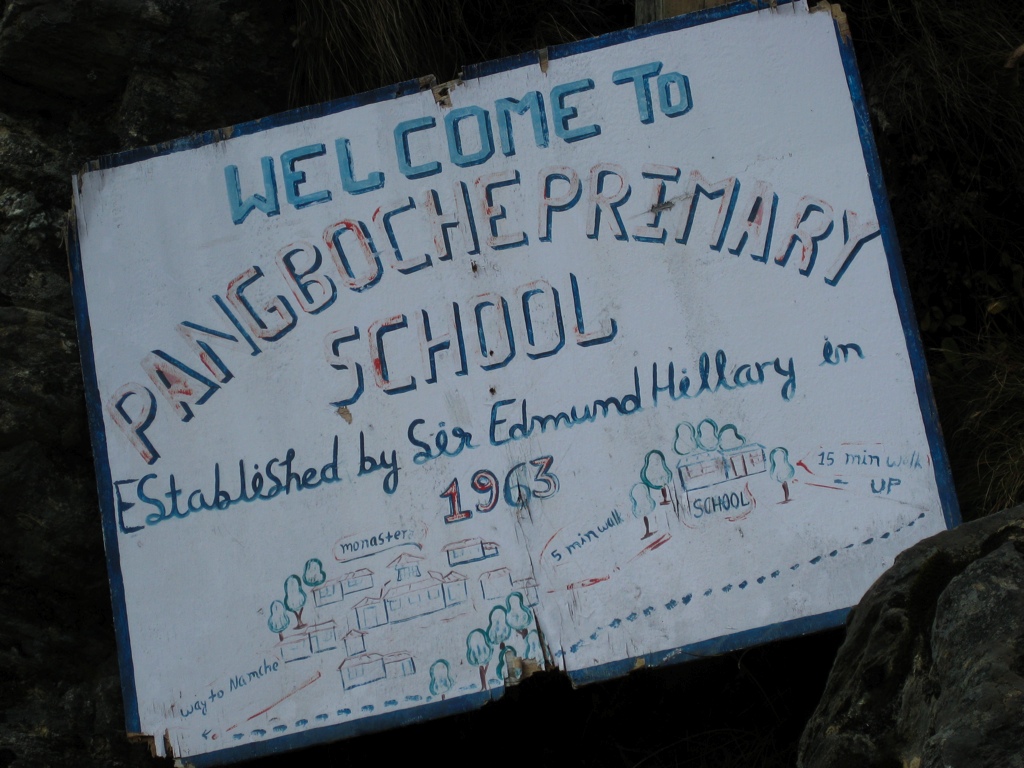 WELCOME TO
PANGBOCHE PRIMARY
SCHOOL
EStabliShed by Sir Edmund Hillary in
1963
15 min walk
UP
SCHOOL
5 min walk
monastery
way to Namche